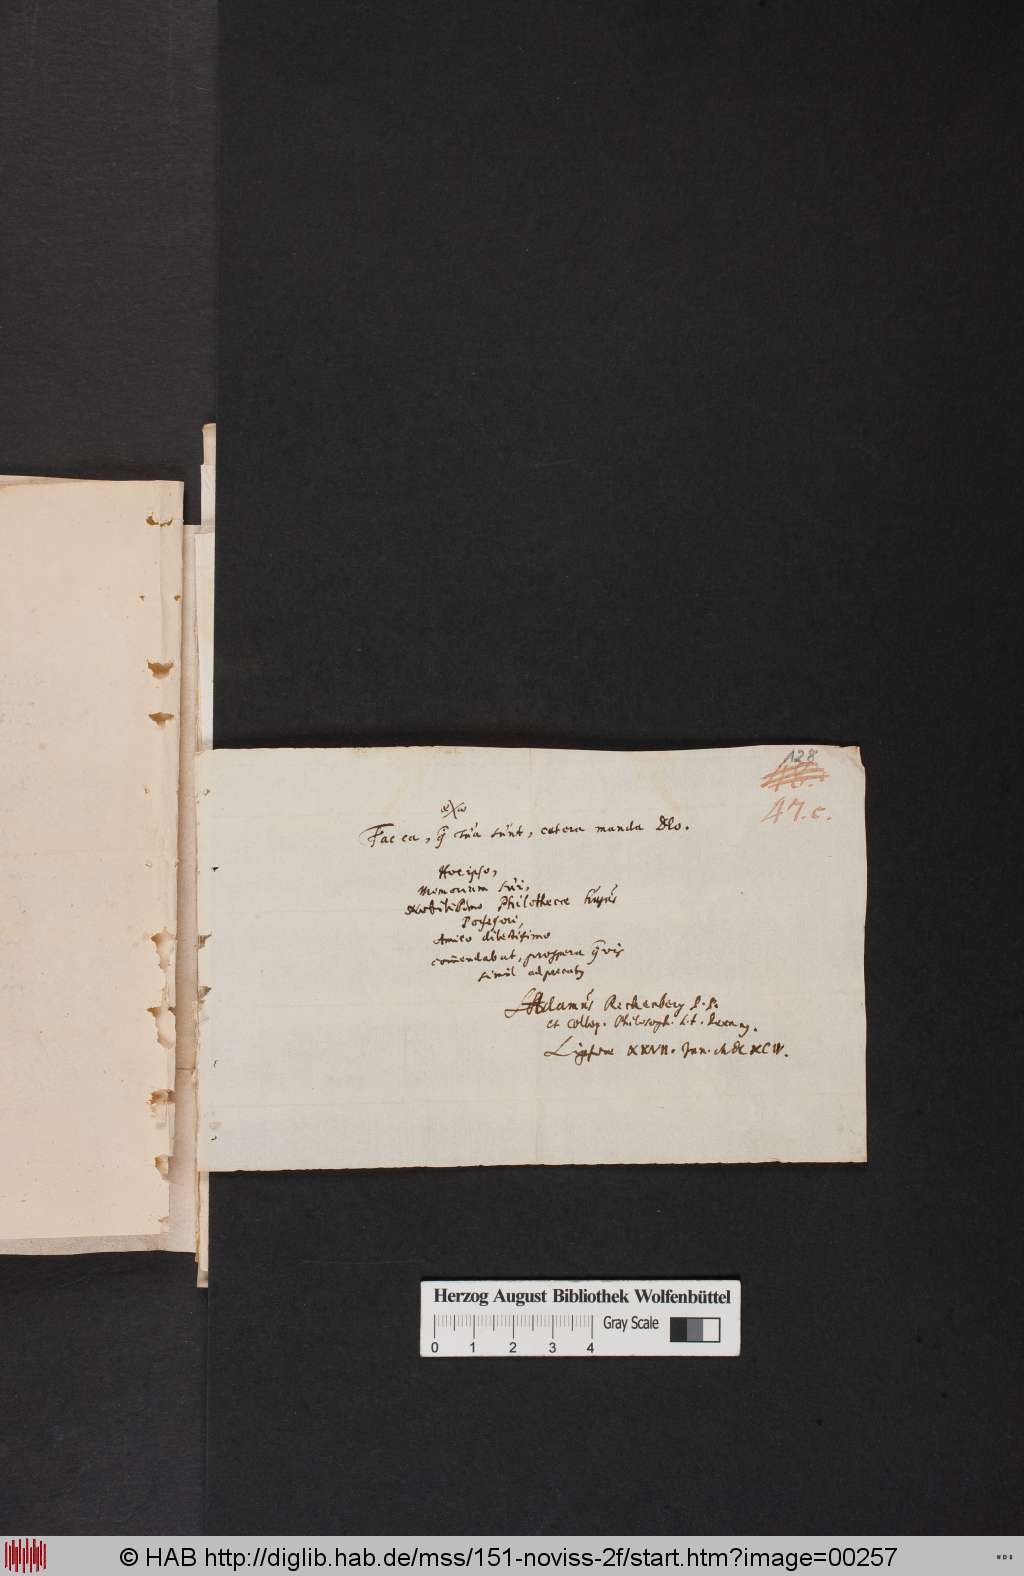 128
48.
47. c.
Fac ea, q̄ tua sunt, cetera manda Deo.
Hoc ipso,
Memoriam sui,
Nobilissimo Philothecae hujus
Possessori,
Amico dilectissimo
com̄endabat, prospera q̄vis
simul adprecatꝰ
Adamus Rechenberg
et Colleg. Philosoph. h. t.
Lipsiae XXVII. Jan. MDCXCIV.
Herzog August Bibliothek Wolfenbüttel
Gray Scale
0 1 2 3 4
© HAB http://diglib.hab.de/mss/151-noviss-2f/start.htm?image=00257